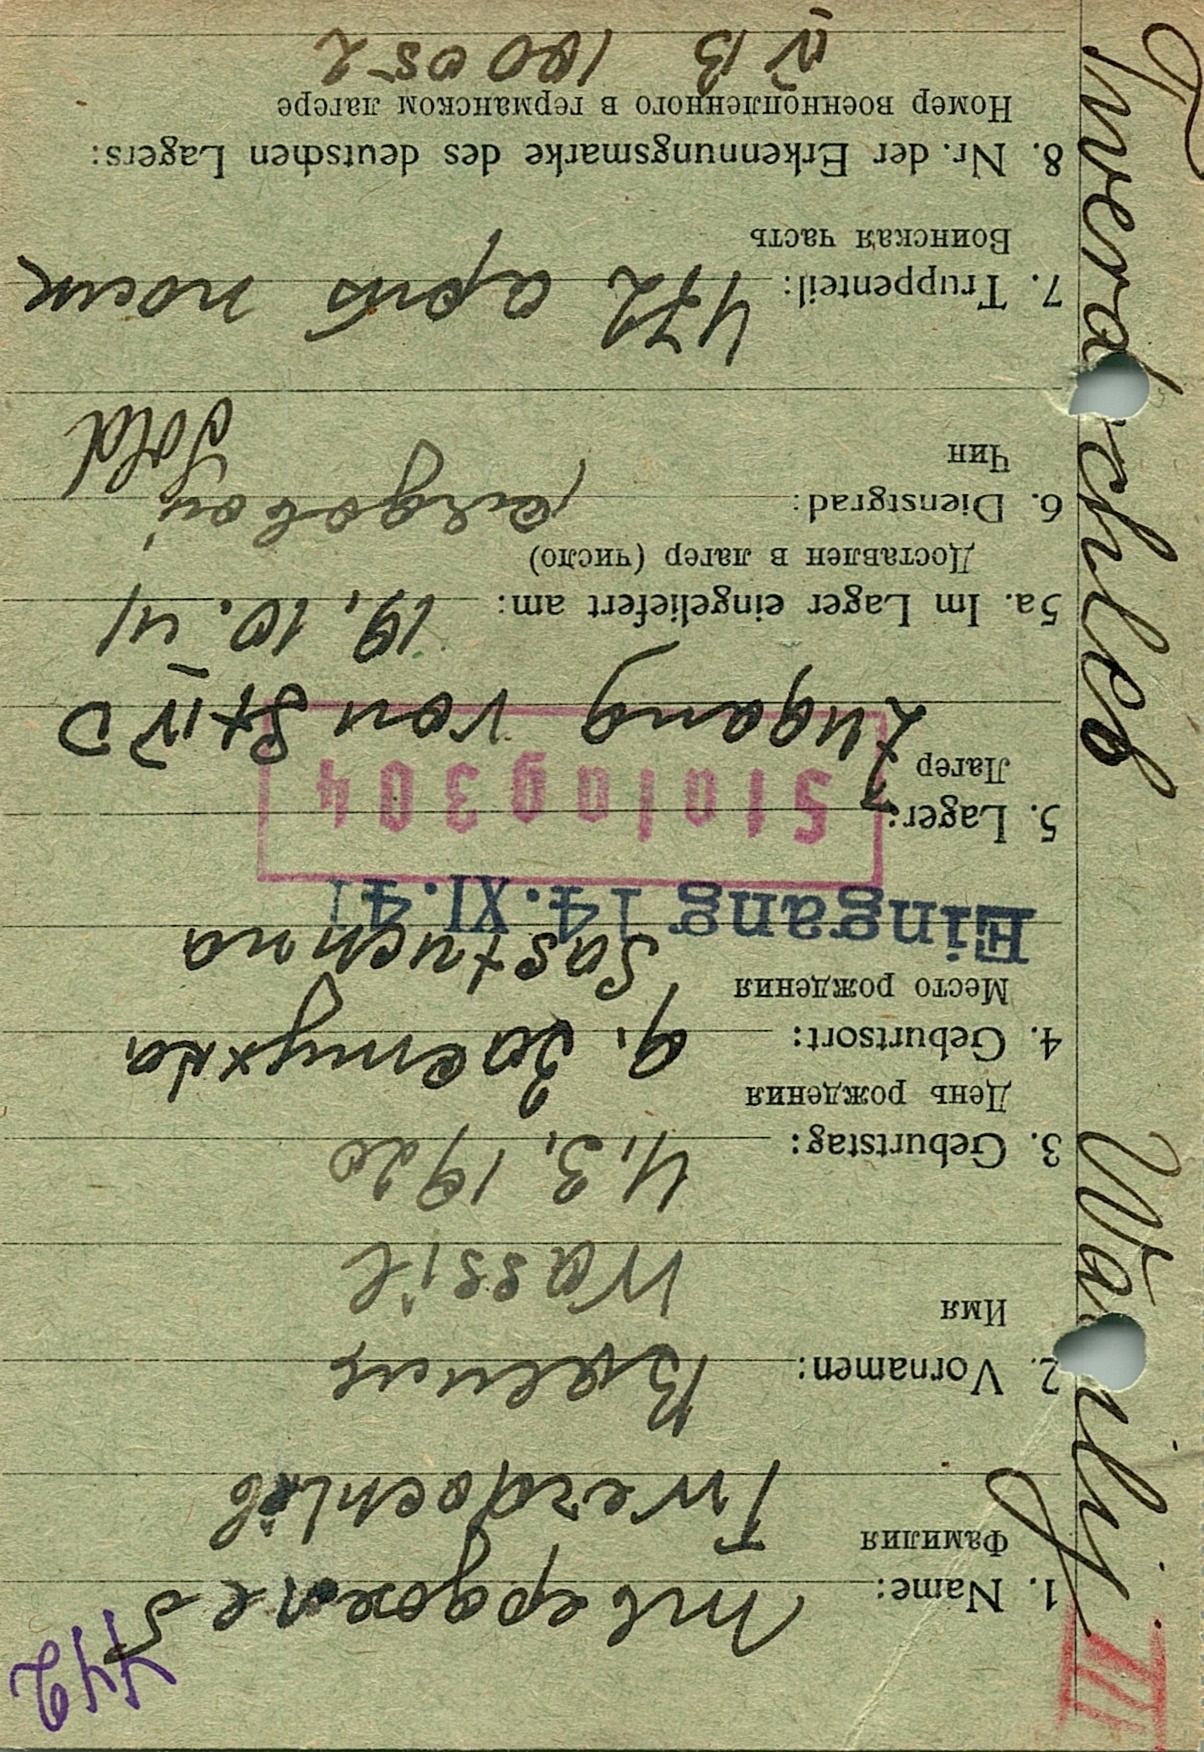 442
III
Twerdochleb Wasilij
1. Name: Твердохлеб
Фамилия
Twerdochleb
2. Vornamen: Василь
Имя
Wassil
3. Geburtstag: 4.3.1920
День рождения
4. Geburtsort: д. Застухна
Место рождения
Sastuchna
Eingang 14. XI. 41
5. Lager:
Stalag 304
Лагер
Zugang von St. IV D
5a. Im Lager eingeliefert am: 19.10.41
Доставлен в лагер (число)
6. Dienstgrad: рядовой
Чин
Sold
7. Truppenteil: 472 арт
Воинская часть
8. Nr. der Erkennungsmarke des deutschen Lagers:
Номер военнопленного в германском лагере
IV B 100052